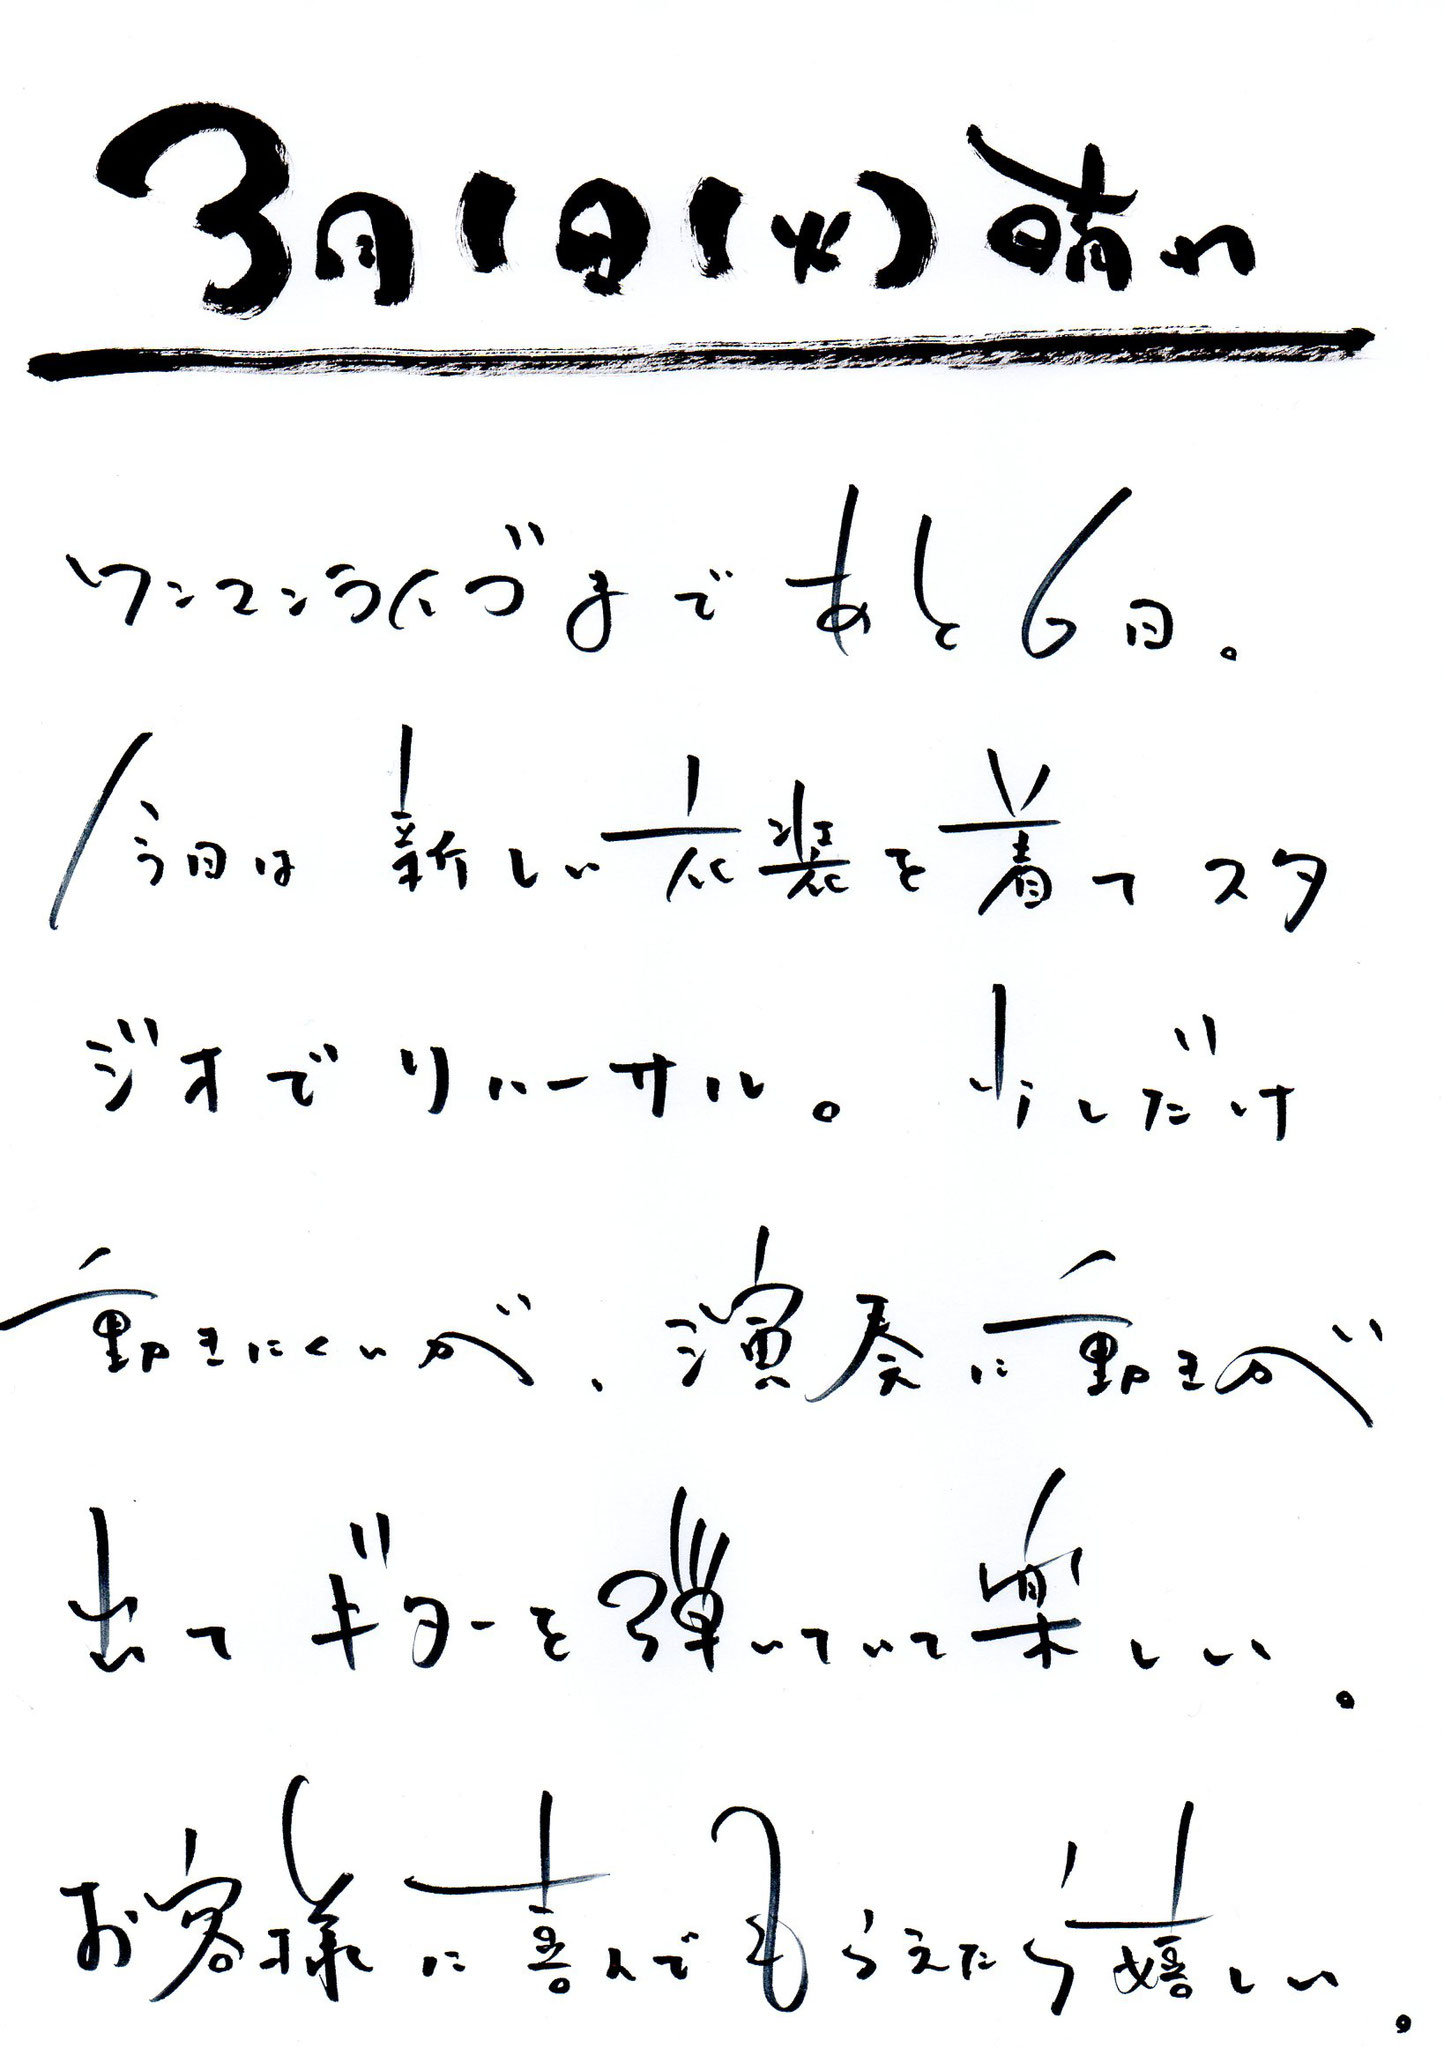 3月1日(火)晴れ
ワンマンライブまであと6日。
今日は新しい衣装を着てスタ
ジオでリハーサル。少しだけ
動きにくいが、演奏に動きが
出てギターを弾いていて楽しい。
お客様に喜んでもらえたら嬉しい。